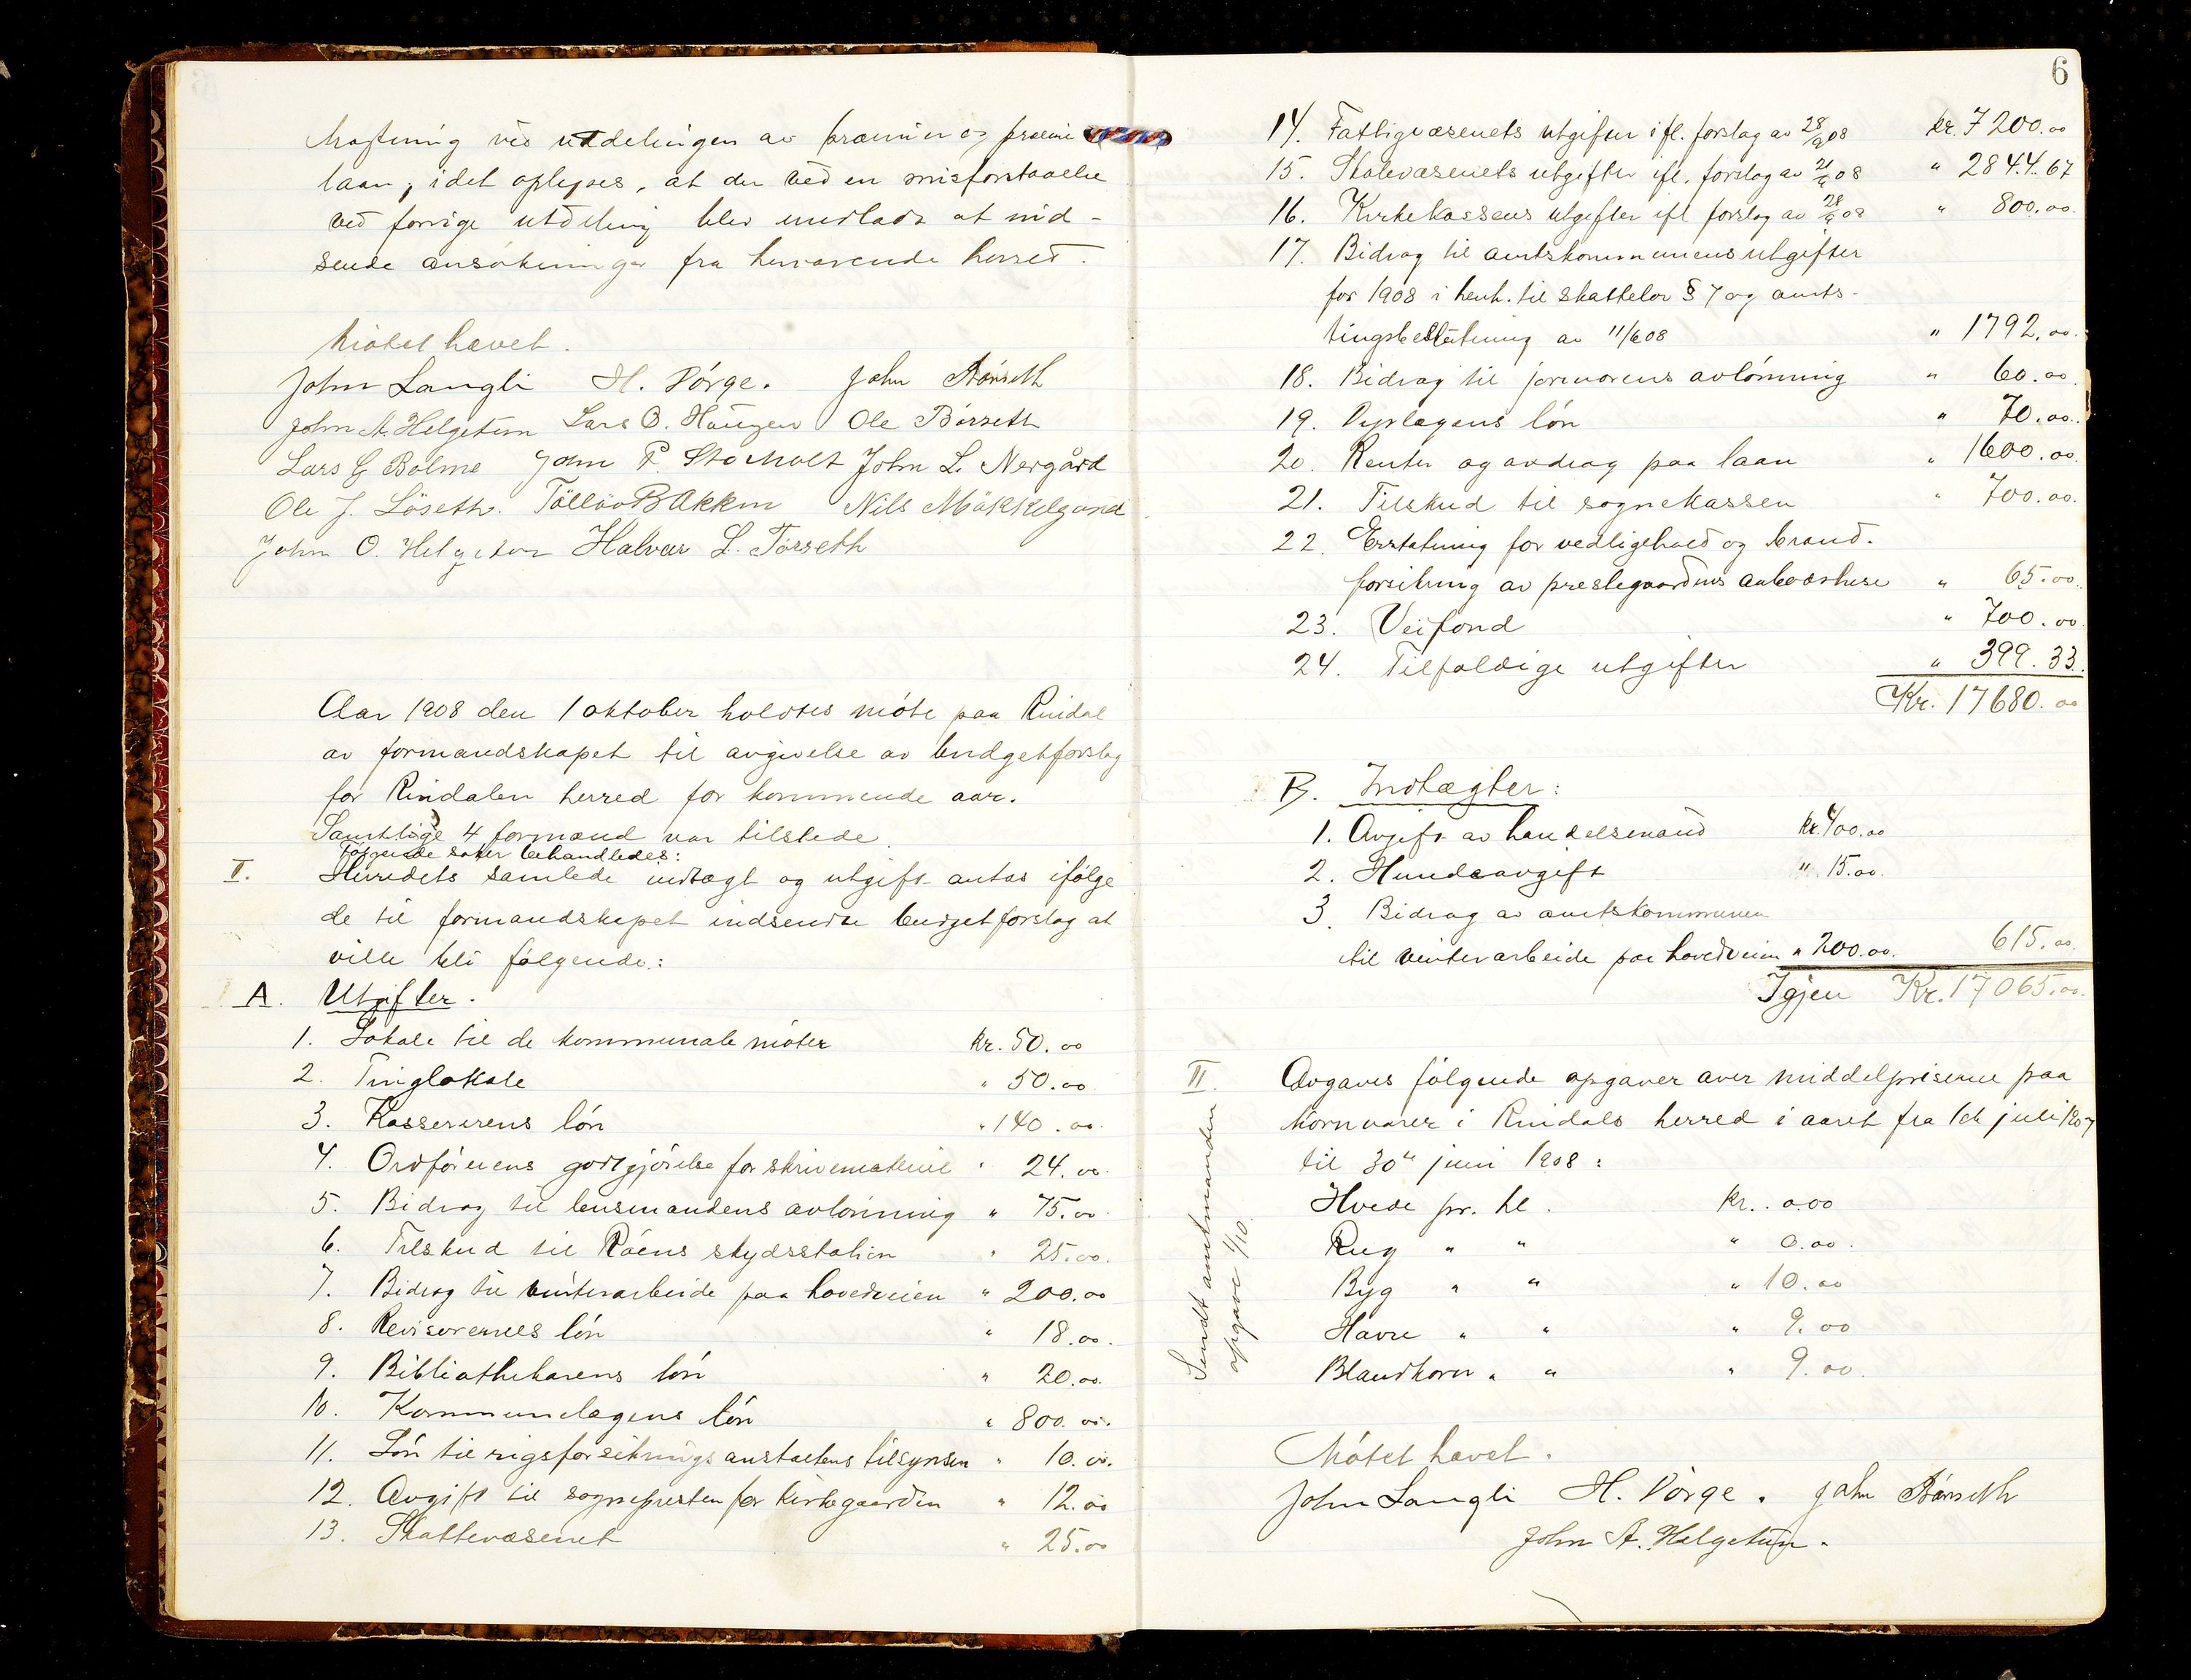 ved uddelingen av præmier og præmie
laan, idet oplyses, at der ved en misforstaaelse
ved forrige utdeling blev undladt at ind-
sende ansøkninger fra herværende herred.
Møtet hævet.
John Langli H. Børge. John Bønseth
John A. Helgetun Lars O. Haugen Ole Børseth
Lars G Bolme John P. Stokholt John L. Nergård
Ole J. Løseth. Tølløv B Akken Nils Mäkkelgund
John O. Helgeton Halvar L. Tørseth
Aar 1908 den 1 oktober holdtes møte paa Rindal
av formandskapet til avgivelse av budgetforslag
for Rindalen herred for kommende aar.
Samtlige 4 formænd var tilstede.
Følgende saker behandledes:
I. Herredets samlede indtægt og utgift antas ifølge
de til formandskapet indsendte budgetforslag at
ville bli følgende:
A. Utgifter.
1. Lokale til de kommunale møter kr. 50.00
2. Tinglokale " 50.00
3. Kassererens løn " 140.00
4. Ordførerens godtgjørelse for skrivematerie " 24.00
5. Bidrag til lensmandens avlønning " 75.00
6. Tilskud til Røens skydsstation " 25.00
7. Bidrag til vinterarbeide paa hovedveien " 200.00
8. Revisorernes løn " 18.00
9. Bibliothekarens løn " 20.00
10. Kommunelægens løn " 800.00
11. Løn til rigsforsikringsanstaltens tilsynsm " 10.00
12. Avgift til sognepresten for kirkegaarden " 12.00
13. Skattevæsenet " 25.00
6
14. Fattigvæsenets utgifter ifl. forslag av 28/9 08 kr. 7200.00
15. Skolevæsenets utgifter ifl. forslag av 21/9 08 " 2844.67
16. Kirkekassens utgifter ifl forslag av 28/9 08 " 800.00
17. Bidrag til amtskommunens utgifter
for 1908 i henh. til skattelov § 7 og amts-
tingsbeslutning av 11/6 08 " 1792.00
18. Bidrag til jormorens avlønning " 60.00
19. Dyrlægens løn " 70.00
20. Renter og avdrag paa laan " 1600.00
21. Tilskud til sognekassen " 700.00
22. Erstatning for vedligehold og brand-
forsikring av prestegaardens aabodshuse " 65.00
23. Veifond " 700.00
24. Tilfældige utgifter " 399.33
Kr. 17680.00
B. Indtægter:
1. Avgift av handelsmænd kr. 400.00
2. Hundeavgift " 15.00
3. Bidrag av amtskommunen
til vinterarbeide paa hovedveien " 200.00. 615.00
Igjen Kr. 17065.00
II. Avgaves følgende opgaver over middelpriserne paa
kornvarer i Rindals herred i aaret fra 1ste juli 1907
til 30te juni 1908:
Hvede pr. hl. kr. 0.00
Rug " " " 0.00
Byg " " " 10.00
Havre " " " 9.00
Blandkorn " " " 9.00
Sendt amtmanden
opgave 1/10
Møtet hævet.
John Langli H. Børge. John Bønseth
John A. Helgetun.